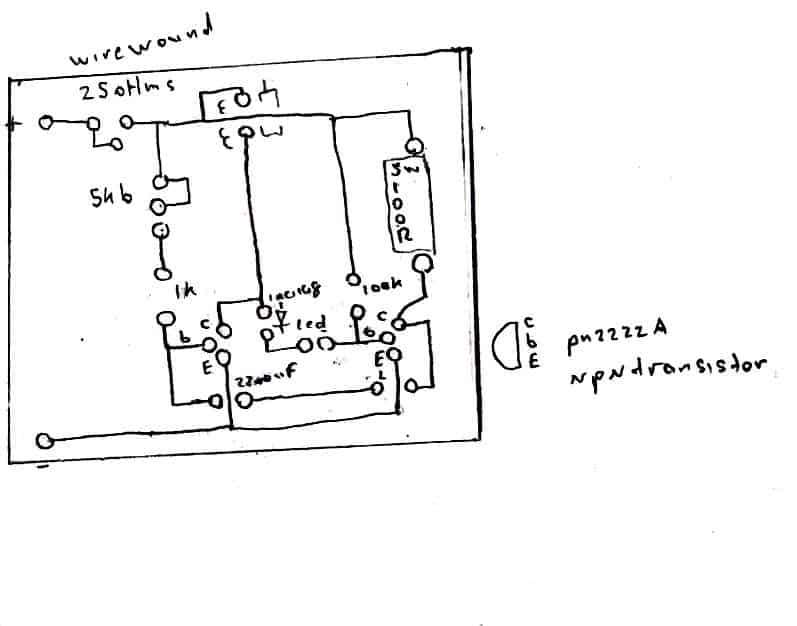 wirewound
25 ohms
+
E
E W
5k b
5W
100R
1k
1N4148
100k
led
c
b
E
c
b
E
2200uf
L
-
c
b
E
pn2222A
NPN transistor